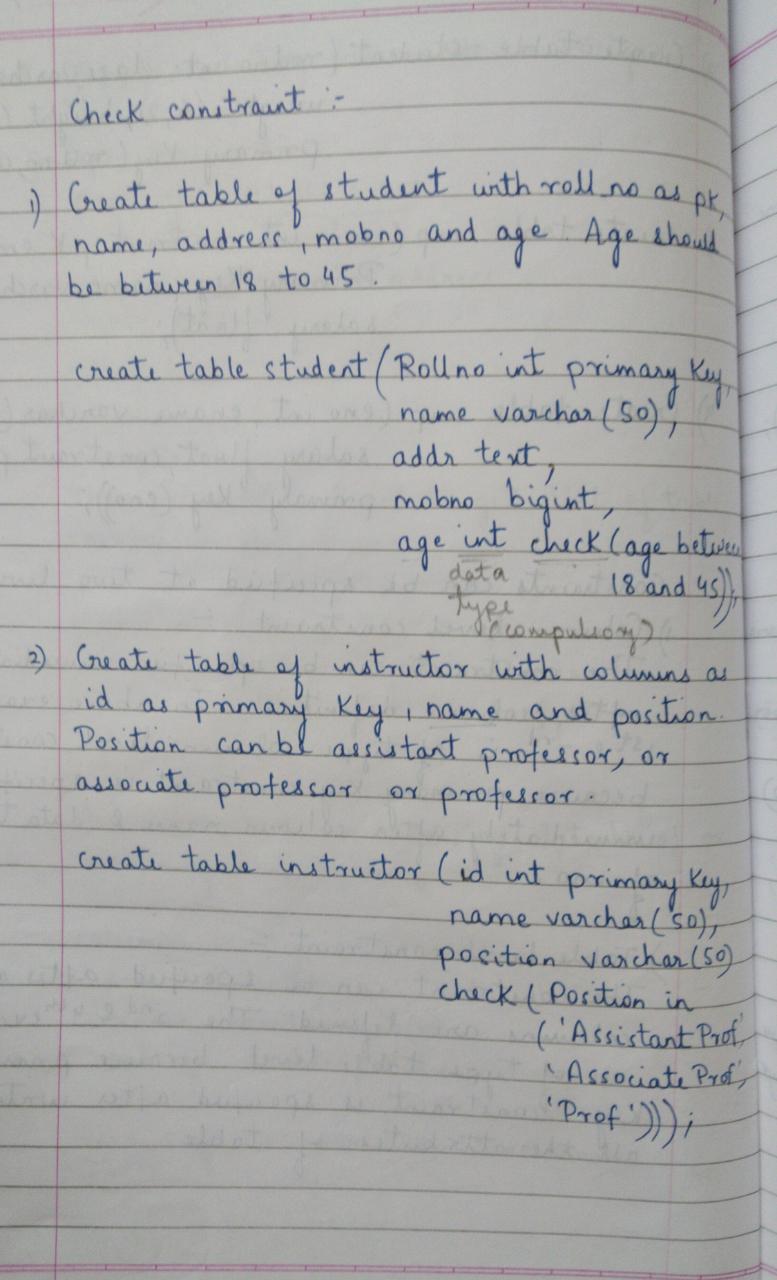 Check constraint :-
1) Create table of student with roll_no as pk,
name, address, mobno and age. Age should
be between 18 to 45.
create table student (Rollno int primary key,
name varchar(50),
addr text,
mobno bigint,
age int check (age between
data 18 and 45));
type
(compulsory)
2) Create table of instructor with columns as
id as primary key, name and position.
Position can be assistant professor, or
associate professor or professor.
create table instructor (id int primary key,
name varchar(50),
position varchar(50)
check (Position in
('Assistant Prof',
'Associate Prof',
'Prof')));